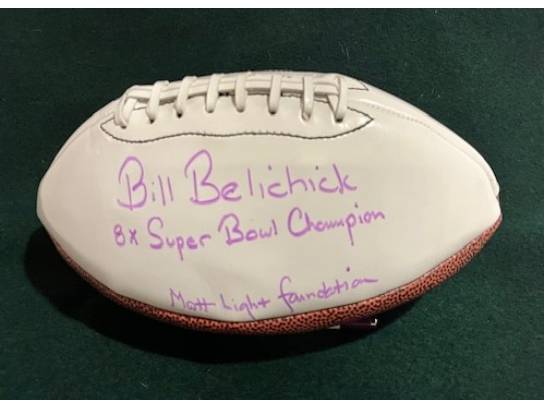 Bill Belichick
8x Super Bowl Champion
Matt Light foundation